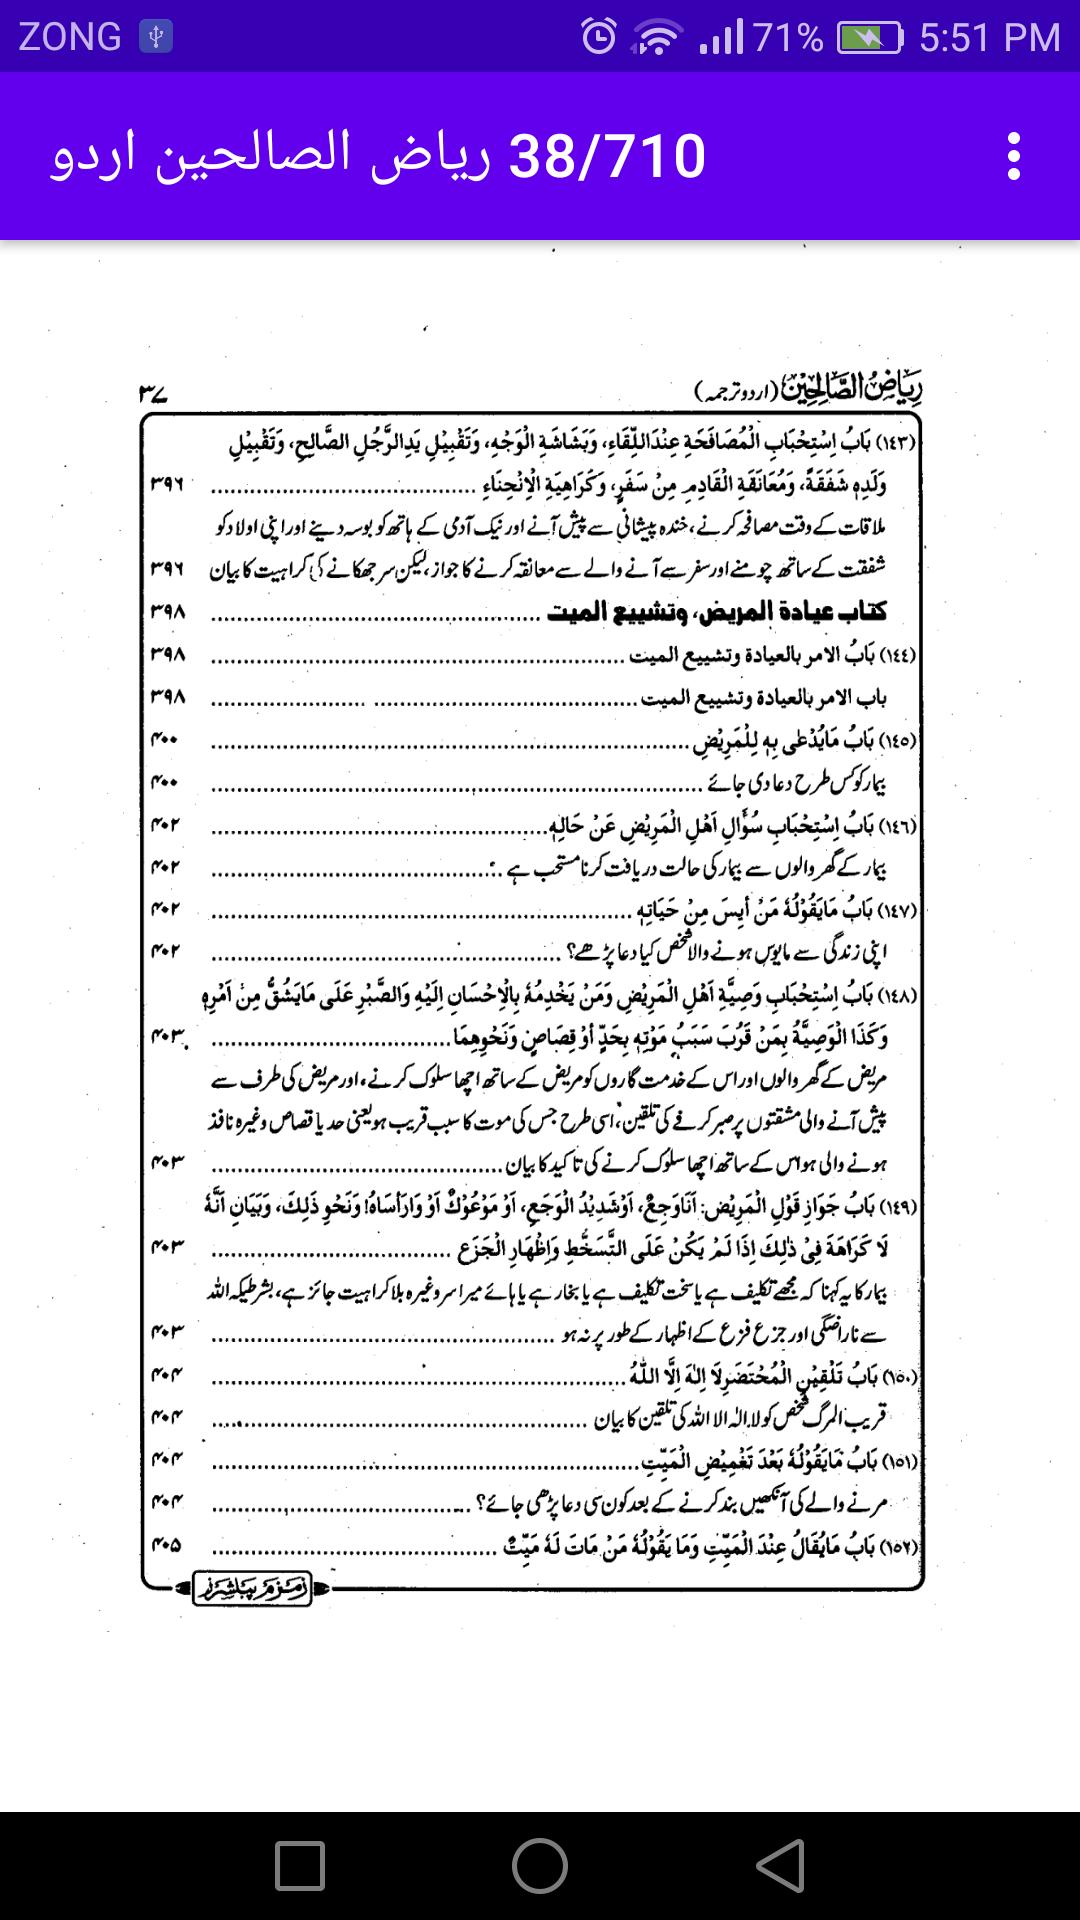 ZONG 71% 5:51 PM
38/710 ریاض الصالحین اردو
ریاض الصالحین (اردو ترجمہ) ۳۷
(١٤٣) بَابُ اِسْتِحْبَابِ الْمُصَافَحَةِ عِنْدَ اللِّقَاءِ، وَبَشَاشَةِ الْوَجْهِ، وَتَقْبِيْلِ يَدِ الرَّجُلِ الصَّالِحِ، وَتَقْبِيْلِ
وَلَدِهٖ شَفَقَةً، وَمُعَانَقَةِ الْقَادِمِ مِنْ سَفَرٍ، وَكَرَاهِيَةِ الْاِنْحِنَاءِ ........ ۳۹۶
ملاقات کے وقت مصافحہ کرنے، خندہ پیشانی سے پیش آنے اور نیک آدمی کے ہاتھ کو بوسہ دینے اور اپنی اولاد کو
شفقت کے ساتھ چومنے اور سفر سے آنے والے سے معانقہ کرنے کا جواز، لیکن سر جھکانے کی کراہیت کا بیان ۳۹۶
کتاب عیادة المریض، وتشییع المیت ........ ۳۹۸
(١٤٤) بَابُ الامر بالعیادة وتشییع المیت ........ ۳۹۸
باب الامر بالعیادة وتشییع المیت ........ ۳۹۸
(١٤٥) بَابُ مَايُدْعٰى بِهٖ لِلْمَرِيْضِ ........ ۴۰۰
بیمار کو کس طرح دعا دی جائے ........ ۴۰۰
(١٤٦) بَابُ اِسْتِحْبَابِ سُؤَالِ اَهْلِ الْمَرِيْضِ عَنْ حَالِهٖ ........ ۴۰۲
بیمار کے گھر والوں سے بیمار کی حالت دریافت کرنا مستحب ہے ........ ۴۰۲
(١٤٧) بَابُ مَايَقُوْلُهٗ مَنْ أَيِسَ مِنْ حَيَاتِهٖ ........ ۴۰۲
اپنی زندگی سے مایوس ہونے والا شخص کیا دعا پڑھے؟ ........ ۴۰۲
(١٤٨) بَابُ اِسْتِحْبَابِ وَصِيَّةِ اَهْلِ الْمَرِيْضِ وَمَنْ يَخْدِمُهٗ بِالْاِحْسَانِ اِلَيْهِ وَالصَّبْرِ عَلَى مَايَشُقُّ مِنْ اَمْرِهٖ
وَكَذَا الْوَصِيَّةُ بِمَنْ قَرُبَ سَبَبُ مَوْتِهٖ بِحَدٍّ أَوْ قِصَاصٍ وَنَحْوِهِمَا ........ ۴۰۳
مریض کے گھر والوں اور اس کے خدمت گاروں کو مریض کے ساتھ اچھا سلوک کرنے، اور مریض کی طرف سے
پیش آنے والی مشقتوں پر صبر کرنے کی تلقین، اسی طرح جس کی موت کا سبب قریب ہو یعنی حد یا قصاص وغیرہ نافذ
ہونے والی ہو اس کے ساتھ اچھا سلوک کرنے کی تاکید کا بیان ........ ۴۰۳
(١٤٩) بَابُ جَوَازِ قَوْلِ الْمَرِيْضِ: اَنَاوَجِعٌ، اَوْشَدِيْدُ الْوَجَعِ، اَوْ مَوْعُوْكٌ اَوْ وَارَأْسَاهُ! وَنَحْوِ ذٰلِكَ، وَبَيَانِ اَنَّهٗ
لَا كَرَاهَةَ فِىْ ذٰلِكَ اِذَا لَمْ يَكُنْ عَلَى التَّسَخُّطِ وَاِظْهَارِ الْجَزَعِ ........ ۴۰۳
بیمار کا یہ کہنا کہ مجھے تکلیف ہے یا سخت تکلیف ہے یا بخار ہے یا ہائے میرا سر وغیرہ بلا کراہیت جائز ہے، بشرطیکہ اللہ
سے ناراضگی اور جزع فزع کے اظہار کے طور پر نہ ہو ........ ۴۰۳
(١٥٠) بَابُ تَلْقِيْنِ الْمُحْتَضَرِ لَا اِلٰهَ اِلَّا اللّٰهُ ........ ۴۰۴
قریب المرگ شخص کو لا الہ الا اللہ کی تلقین کا بیان ........ ۴۰۴
(١٥١) بَابُ مَايَقُوْلُهٗ بَعْدَ تَغْمِيْضِ الْمَيِّتِ ........ ۴۰۴
مرنے والے کی آنکھیں بند کرنے کے بعد کون سی دعا پڑھی جائے؟ ........ ۴۰۴
(١٥٢) بَابُ مَايُقَالُ عِنْدَ الْمَيِّتِ وَمَا يَقُوْلُهٗ مَنْ مَاتَ لَهٗ مَيِّتٌ ........ ۴۰۵
زمزم پبلشرز